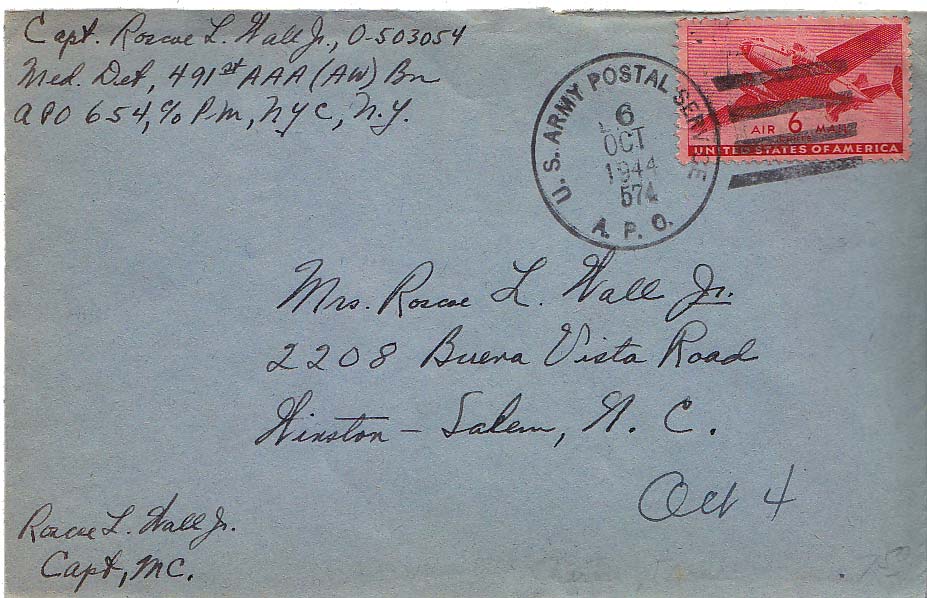 Capt. Roscoe L. Wall Jr., O-503054
Med. Det, 491st AAA (AW) Bn
APO 654, c/o P.M, NYC, N.Y.
U.S. ARMY POSTAL SERVICE
6
OCT
1944
574
A. P. O.
AIR 6 MAIL
UNITED STATES OF AMERICA
Mrs. Roscoe L. Wall Jr.
2208 Buena Vista Road
Winston - Salem, N. C.
Oct 4
Roscoe L. Wall Jr.
Capt, MC.